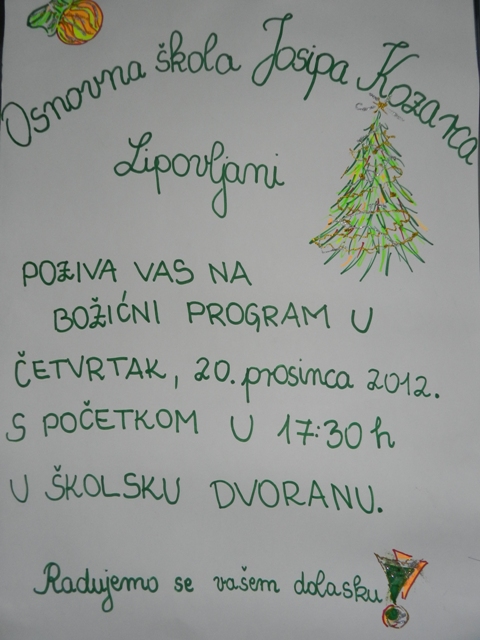 Osnovna škola Josipa Kozarca
Lipovljani
POZIVA VAS NA
BOŽIĆNI PROGRAM U
ČETVRTAK, 20. prosinca 2012.
S POČETKOM U 17:30 h
U ŠKOLSKU DVORANU.
Radujemo se vašem dolasku!